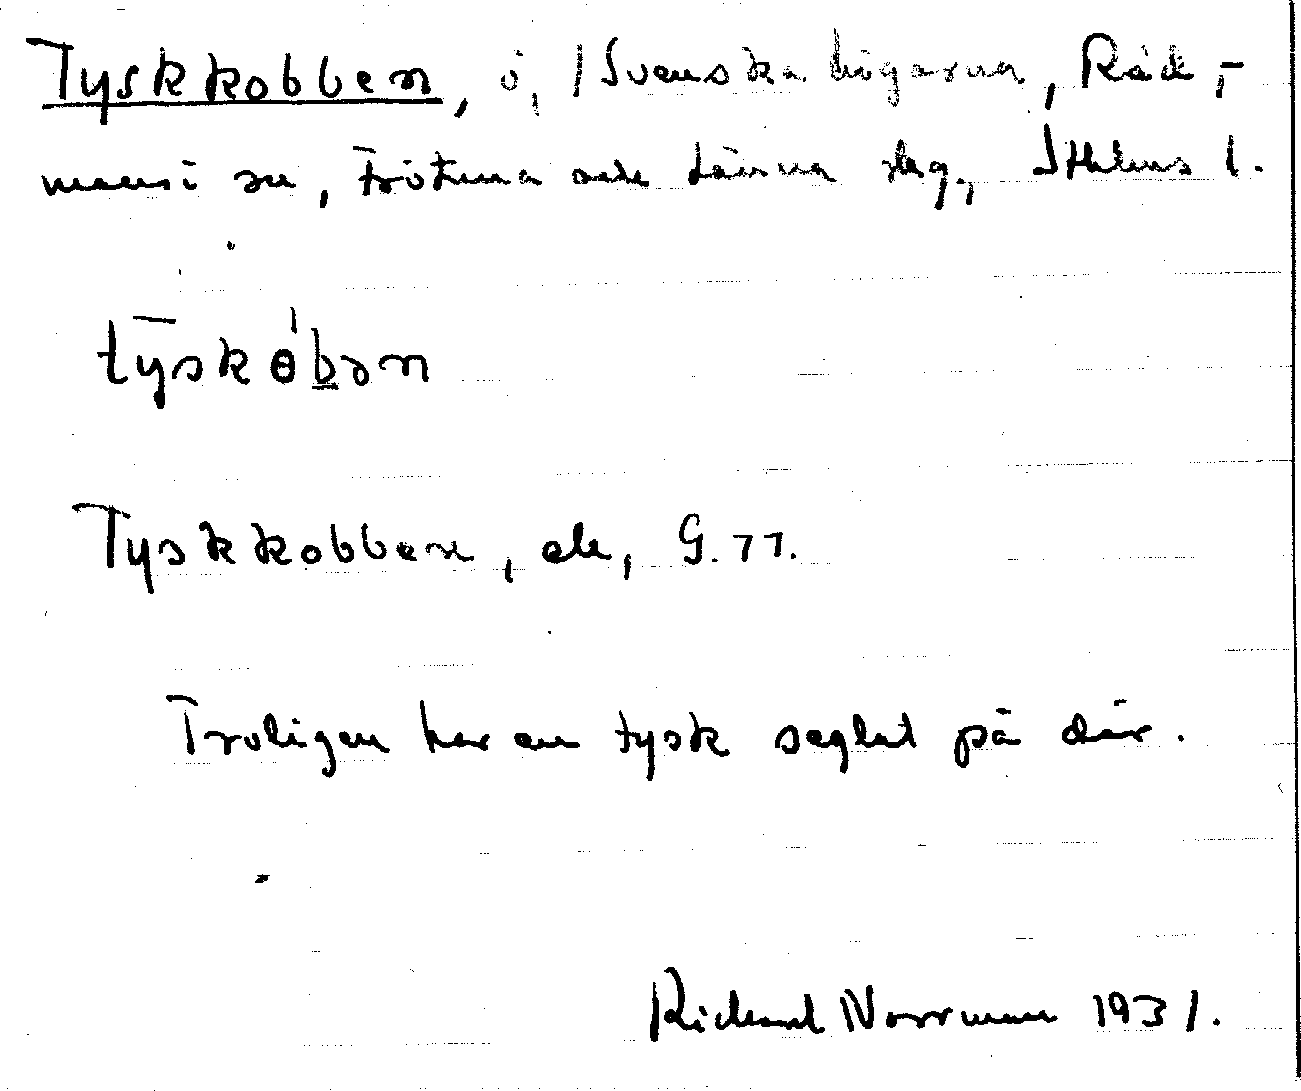 Tyskkobben, ö, i Svenska högarna, Råd-
mansö sn, Frötuna och Länna skg., Sthlms l.
tȳskɵ́bən
Tyskkobben, ek, G. 77.
Troligen har en tysk seglat på där.
Richard Norrman 1931.